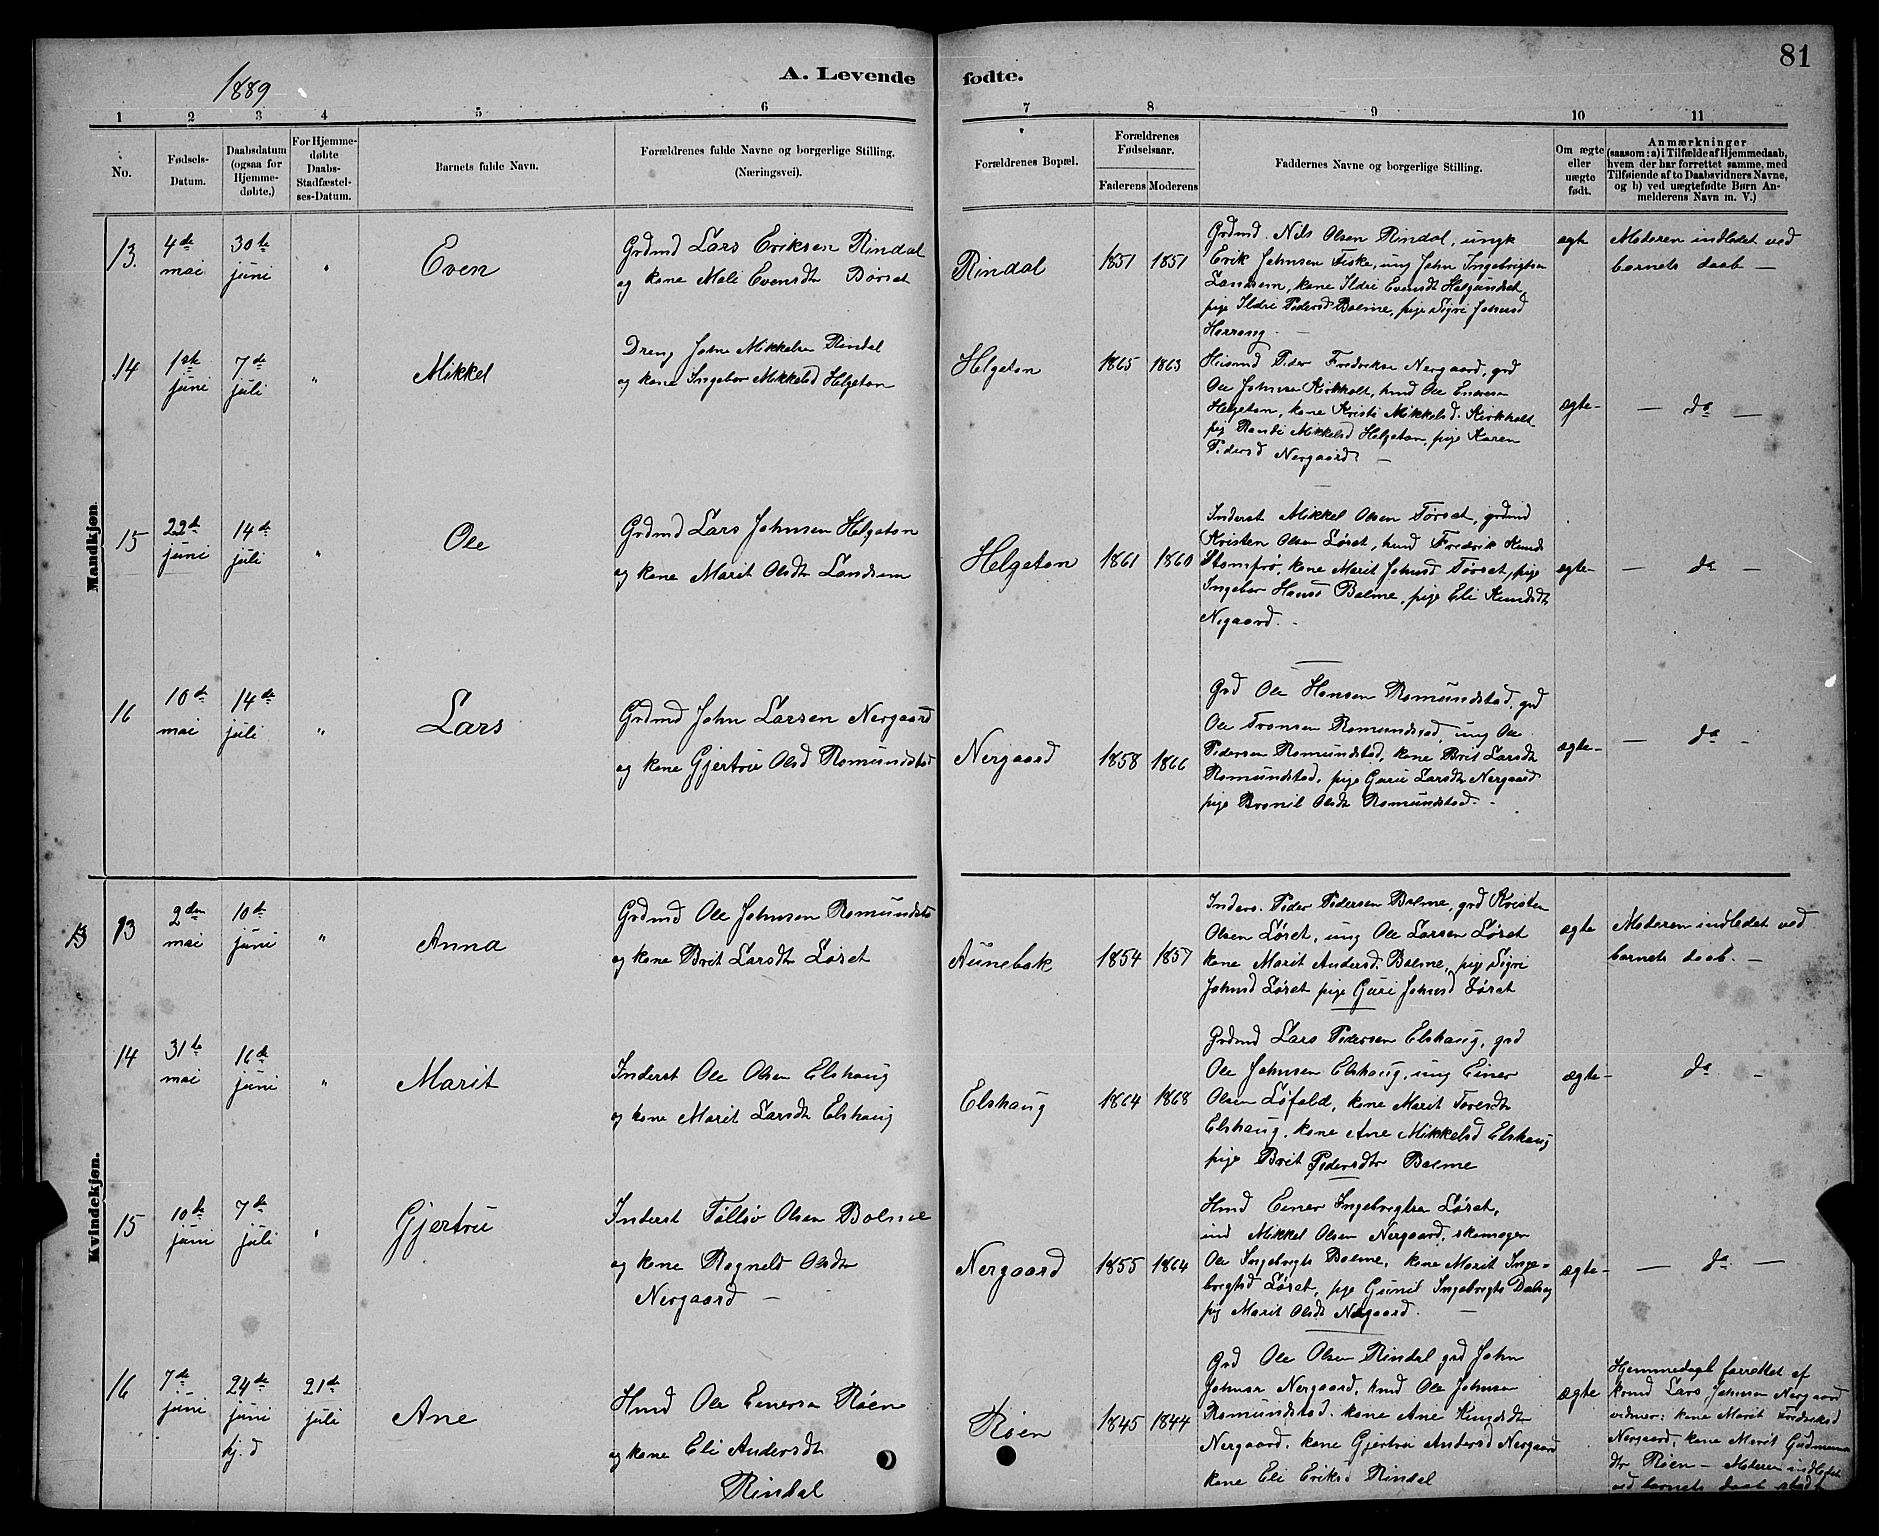 81
1889
A. Levende fødte.
1 2 3 4 5 6 7 8 9 10 11
No.
Fødsels-Datum.
Daabsdatum (ogsaa for Hjemmedøbte,)
For Hjemmedøbte Daabs-Stadfæstelses-Datum.
Barnets fulde Navn.
Forældrenes fulde Navne og borgerlige Stilling.
(Næringsvei).
Forældrenes Bopæl.
Forældrenes Fødselsaar.
Faderens Moderens
Faddernes Navne og borgerlige Stilling.
Om ægte eller uægte født.
Anmærkninger
(saasom: a) i Tilfælde af Hjemmedaab,
hvem der har forrettet samme, med
Tilføiende af to Daabsvidners Navne,
og b) ved uægtefødte Børn Anmelderens Navn m. V.)
Mandkjøn.
13. 4de mai 30te juni " Even
Grdmd Lars Eriksen Rindal
og kone Mali Evensdt Børset
Rindal 1851 1851
Grdmd. Nils Olsen Rindal, ungk
Erik Johnsen Fiske, ung John Ingebrigtsen
Landsem, kone Ildri Evensdt Helgundset,
pige Ildri Pedersd Bolme, pige Sigri Johnsd
Harrang. —
ægt
Moderen indledet ved
barnets daab —
14 1ste juni 7de juli " Mikkel
Dreng John Mikkelsen Rindal
og kone Ingebor Mikkelsd Helgeton
Helgeton 1865 1863
Huusmd Peder Fredriksen Nergaard, grd
Ole Johnsen Kirkholt, hmd Ole Enersen
Helgeton, kone Kristi Mikkelsd. Kirkholt
pig Randi Mikkelsd Helgeton, pige Karen
Pedersd Nergaard. —
ægte-
— da —
15 22de juni 14de juli " Ole
Grdmd Lars Johnsen Helgeton
og kone Marit Olsdt Landsem
Helgeton 1861 1860
Inderst Mikkel Olsen Tørset, grdmd
Kristen Olsen Løset, hmd Fredrik Knuds
Stomprø, kone Marit Johnsd Tørset, pige
Ingebor Hansd Bolme, pige Eli Knudsdt
Nigaard. -
ægte-
— da —
16 10de mai 14de juli " Lars
Grdmd John Larsen Nergaard
og kone Gjertru Olsd Romundstad
Nergaard 1858 1866
Grd Ole Hansen Romundstad, grd
Ole Tronsen Romundstad, ung Ole
Pedersen Romundstad, kone Brit Larsdt
Romundstad, pige Guru Larsdt Nergaard
pige Bronil Olsdt Romundstad. -
ægte-
— da -
Kvindekjøn.
13 13 2den mai 10de juni " Anna
Grdmd Ole Johnsen Romundstad
og kone Brit Larsdt Løset
Aunebak 1854 1857
Inders. Peder Pedersen Bolme, grd Kristen
Olsen Løset, ung Ole Larsen Løset
kone Marit Andersd. Bolme, pig Sigri
Johnsd Løset pige Guri Johnsd Løset
ægte
Moderen indledet ved
barnets daab. —
14 31te mai 16de juni " Marit
Inderst Ole Olsen Elshaug
og kone Marit Larsdt Elshaug
Elshaug 1864 1868
Grdmd Lars Pedersen Elshaug, grd
Ole Johnsen Elshaug, ung Einer
Olsen Løfald, kone Marit Toresdt
Elshaug, kone Ane Mikkelsd Elshaug
pige Brit Pedersdtr Bolme
ægte-
da -
15 10de juni 7de juli " Gjertru
Inderst Tølløv Olsen Bolme
og kone Ragneld Olsdtr
Nergaard —
Nergaard 1855 1864
Hmd Einer Ingebrigtsen Løset,
ind Mikkel Olsen Nergaard, skomager
Ole Ingebrigts Bolme, kone Marit Ingebrigtsd
Løset, pge Gunil Ingebrigts
pig Marit Olsdt Nergaard. —
ægte-
— da —
16 7de juni 24de juni hj. d 21de juli Ane
Hmd Ole Einersen Røen
og kone Eli Andersdtr
Rindal
Røen 1845 1844
Grd Ole Olsen Rindal grd John
Johnsen Nergaard, hmd Ole Johnsen
Romundstad. kone Ane Knudsdtr
Nergaard. kone Gjertru Andersd Nergaard
kone Eli Eriksd Rindal
ægte
Hjemmedøbt forrettet af
Lars Johnsen Nergaard
vidner: kone Marit Fredriksd
Nergaard, kone Marit Gudmundsdtr
Røen — Moderen indledet
ved barnets daab